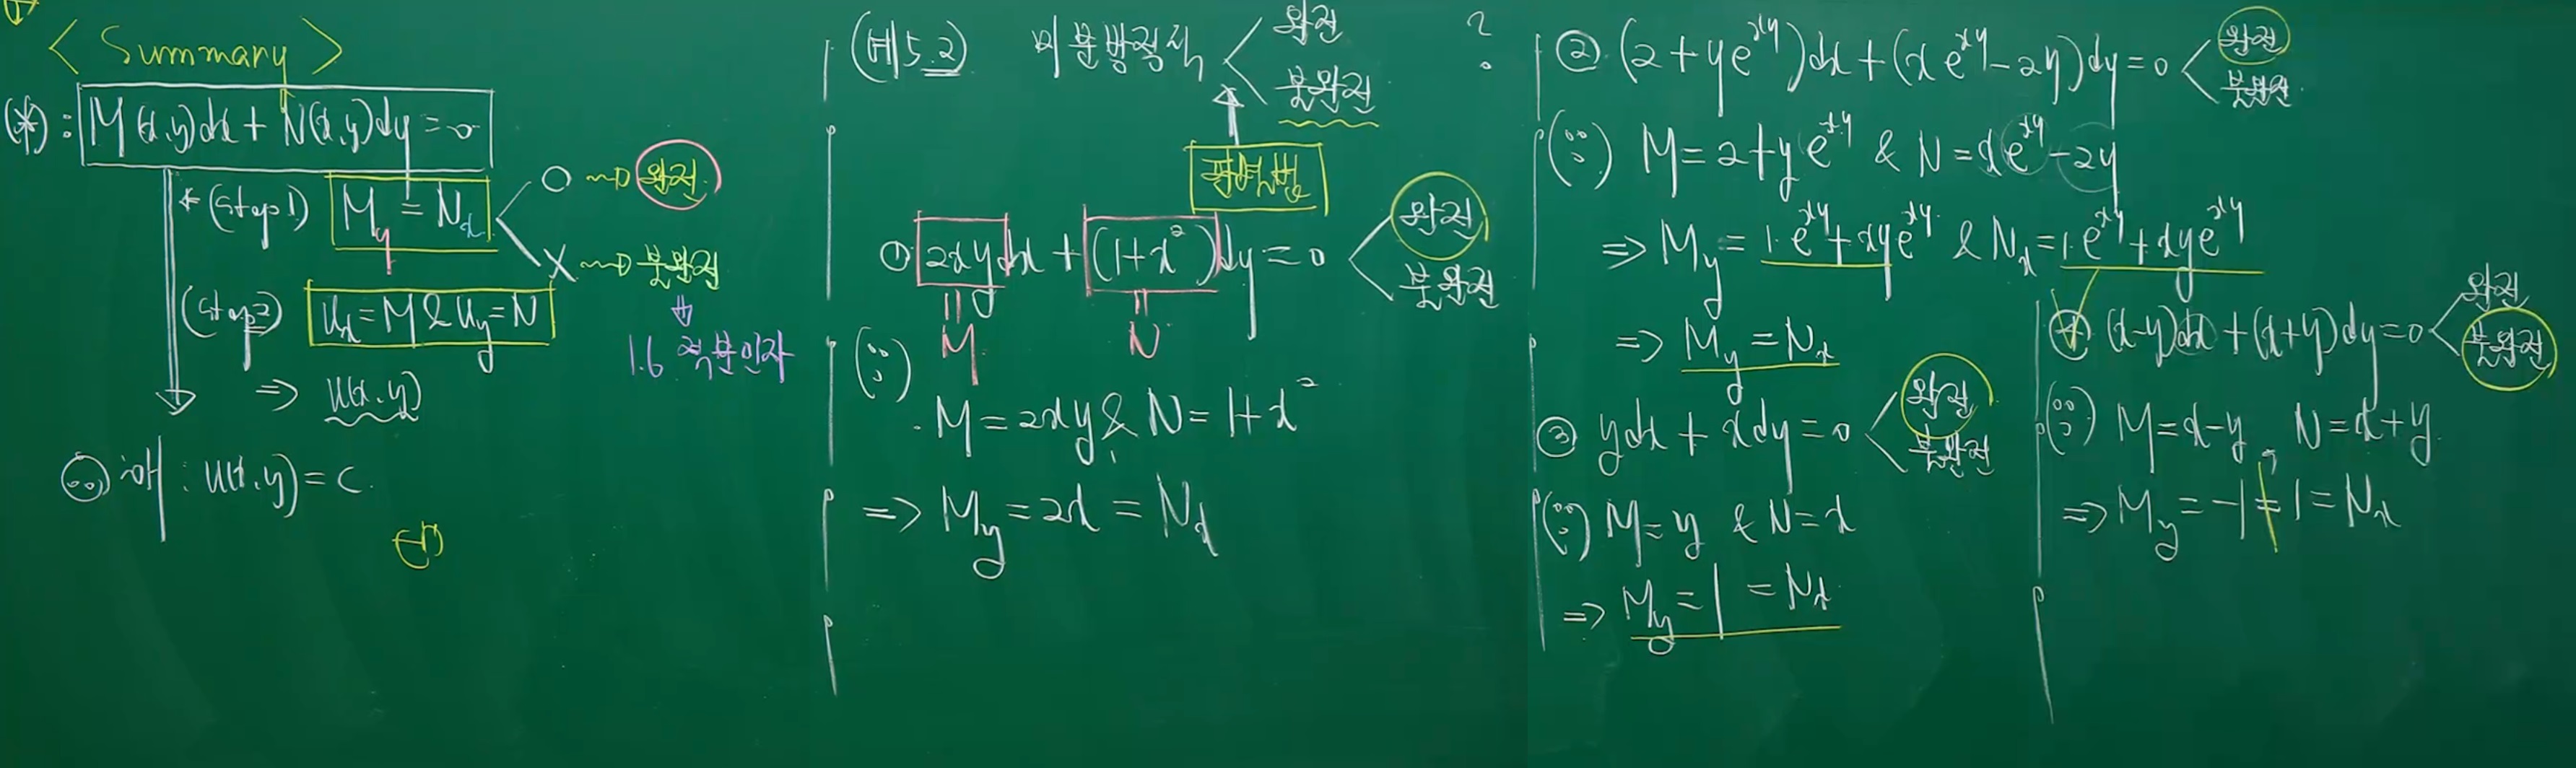 < Summary >
(*) : M(x,y)dx + N(x,y)dy = 0
(Step1) My = Nx
O ~> 완전
X ~> 불완전
1.6 적분인자
(Step2) ux = M & uy = N
⇒ u(x,y)
해 : u(x,y) = c.
(예5.2) 미분방정식 < 완전 불완전 ?
판별법
① 2xydx + (1+x²)dy = 0 < 완전 불완전
M N
(∵)
M = 2xy & N = 1+x²
⇒ My = 2x = Nx
② (2+ye^xy)dx + (xe^xy-2y)dy = 0 < 완전 불완전
(∵) M = 2+ye^xy & N = xe^xy-2y
⇒ My = 1·e^xy + xye^xy & Nx = 1·e^xy + xye^xy
⇒ My = Nx
③ ydx + xdy = 0 < 완전 불완전
(∵) M = y & N = x
⇒ My = 1 = Nx
④ (x-y)dx + (x+y)dy = 0 < 완전 불완전
(∵) M = x-y, N = x+y
⇒ My = -1 ≠ 1 = Nx